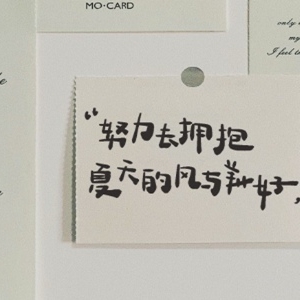 MO·CARD
only
my
I feel
“努力去拥抱
夏天的风与美好，